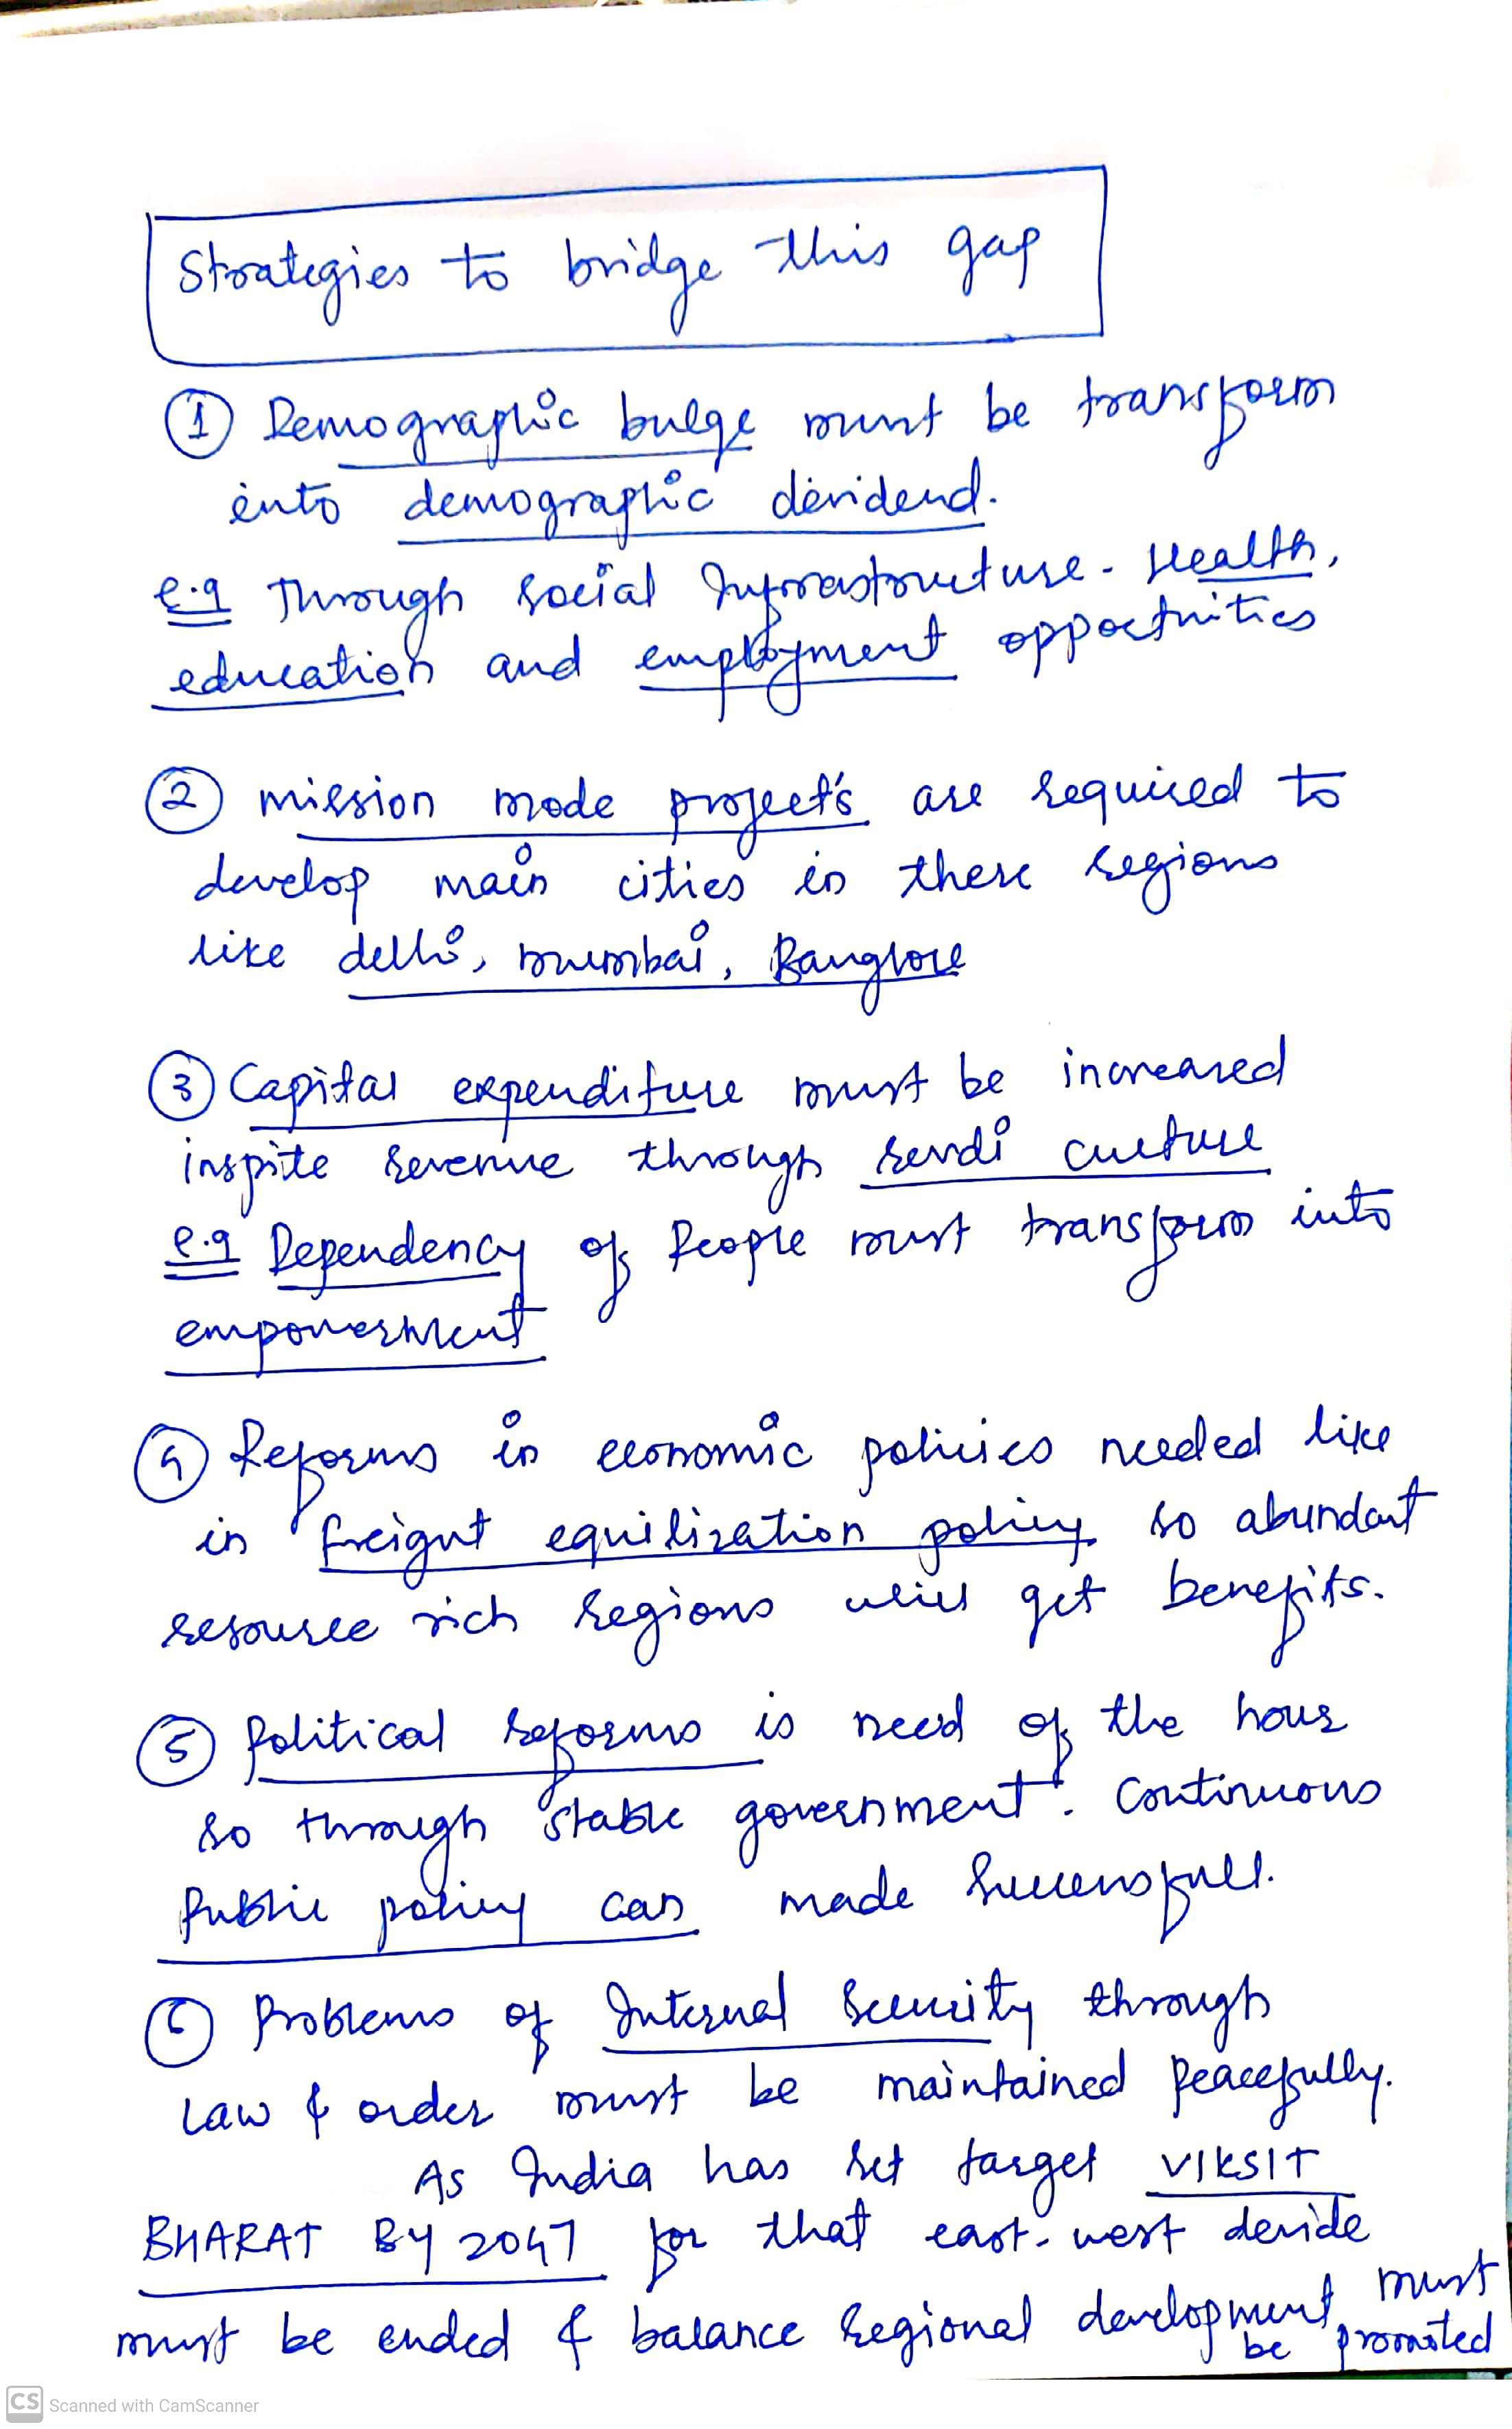 Strategies to bridge this gap
① Demographic bulge must be transform
into demographic dividend.
e.g Through Social Infrastructure - Health,
education and employment opportunities
② mission mode project's are required to
develop main cities in these regions
like delhi, mumbai, Banglore
③ Capital expenditure must be increased
inspite revenue through revdi culture
e.g Dependency of People must transform into
empowerment
④ Reforms in economic policies needed like
in freight equilization policy so abundant
resource rich regions will get benefits.
⑤ Political reforms is need of the hour
so through stable government. Continuous
Public policy can made Successfull.
⑥ Problems of Internal Security through
Law & order must be maintained Peacefully.
As India has set target VIKSIT
BHARAT BY 2047 for that east-west devide
must be ended & balance regional development must
be promoted
CS Scanned with CamScanner